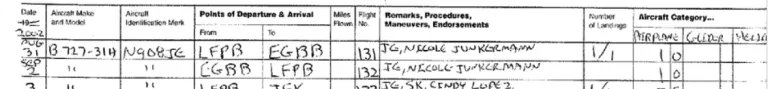 Date Aircraft Make and Model Aircraft Identification Mark Points of Departure & Arrival Miles Flown Flight No. Remarks, Procedures, Maneuvers, Endorsements Number of Landings Aircraft Category...
2002 From To AIRPLANE GLIDER
AUG 31 B727-31H N908JE LFPB EGBB 131 JE, NICOLE JUNKERMANN 1/1 1 0
SEP 2 " " EGBB LFPB 132 JE, NICOLE JUNKERMANN 1 0
3 " " LFPB JFK JE, SK, CINDY LOPEZ 1 0